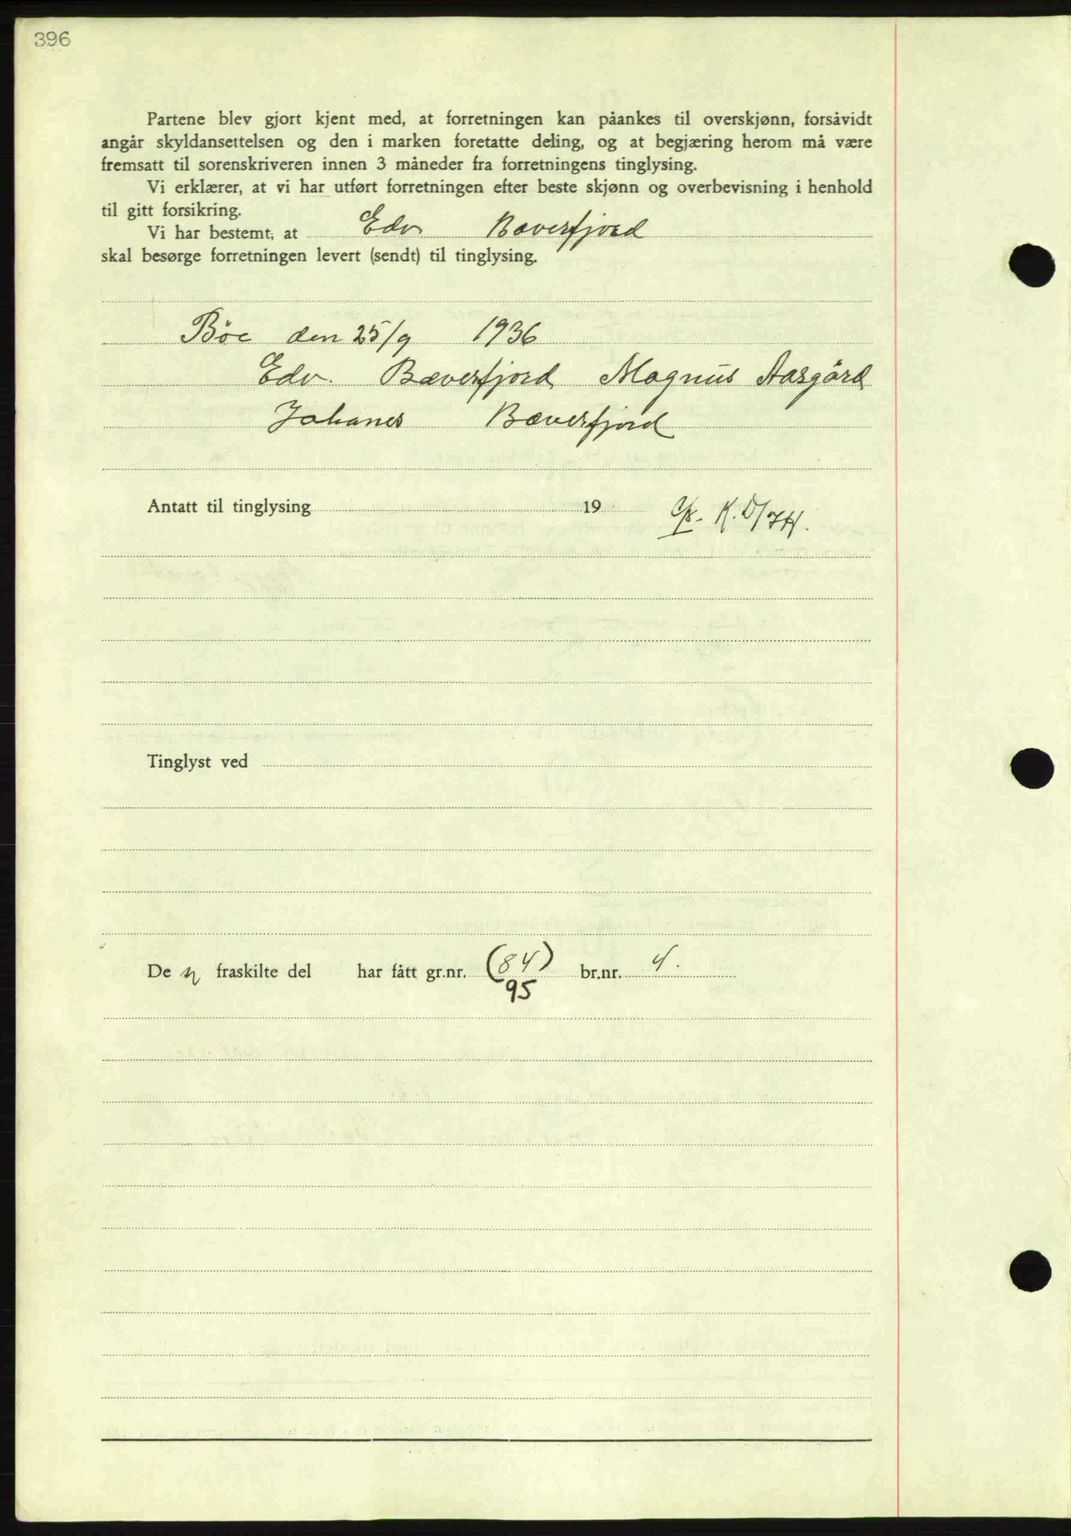 396
Partene blev gjort kjent med, at forretningen kan påankes til overskjønn, forsåvidt
angår skyldansettelsen og den i marken foretatte deling, og at begjæring herom må være
fremsatt til sorenskriveren innen 3 måneder fra forretningens tinglysing.
Vi erklærer, at vi har utført forretningen efter beste skjønn og overbevisning i henhold
til gitt forsikring.
Vi har bestemt, at Edv Bæverfjord
skal besørge forretningen levert (sendt) til tinglysing.
Bøe den 25/9 1936
Edv. Bæverfjord Magnus Aasgård
Johanes Bæverfjord
Antatt til tinglysing 19
Tinglyst ved
De n fraskilte del har fått gr.nr. (84) br.nr. 4.
95